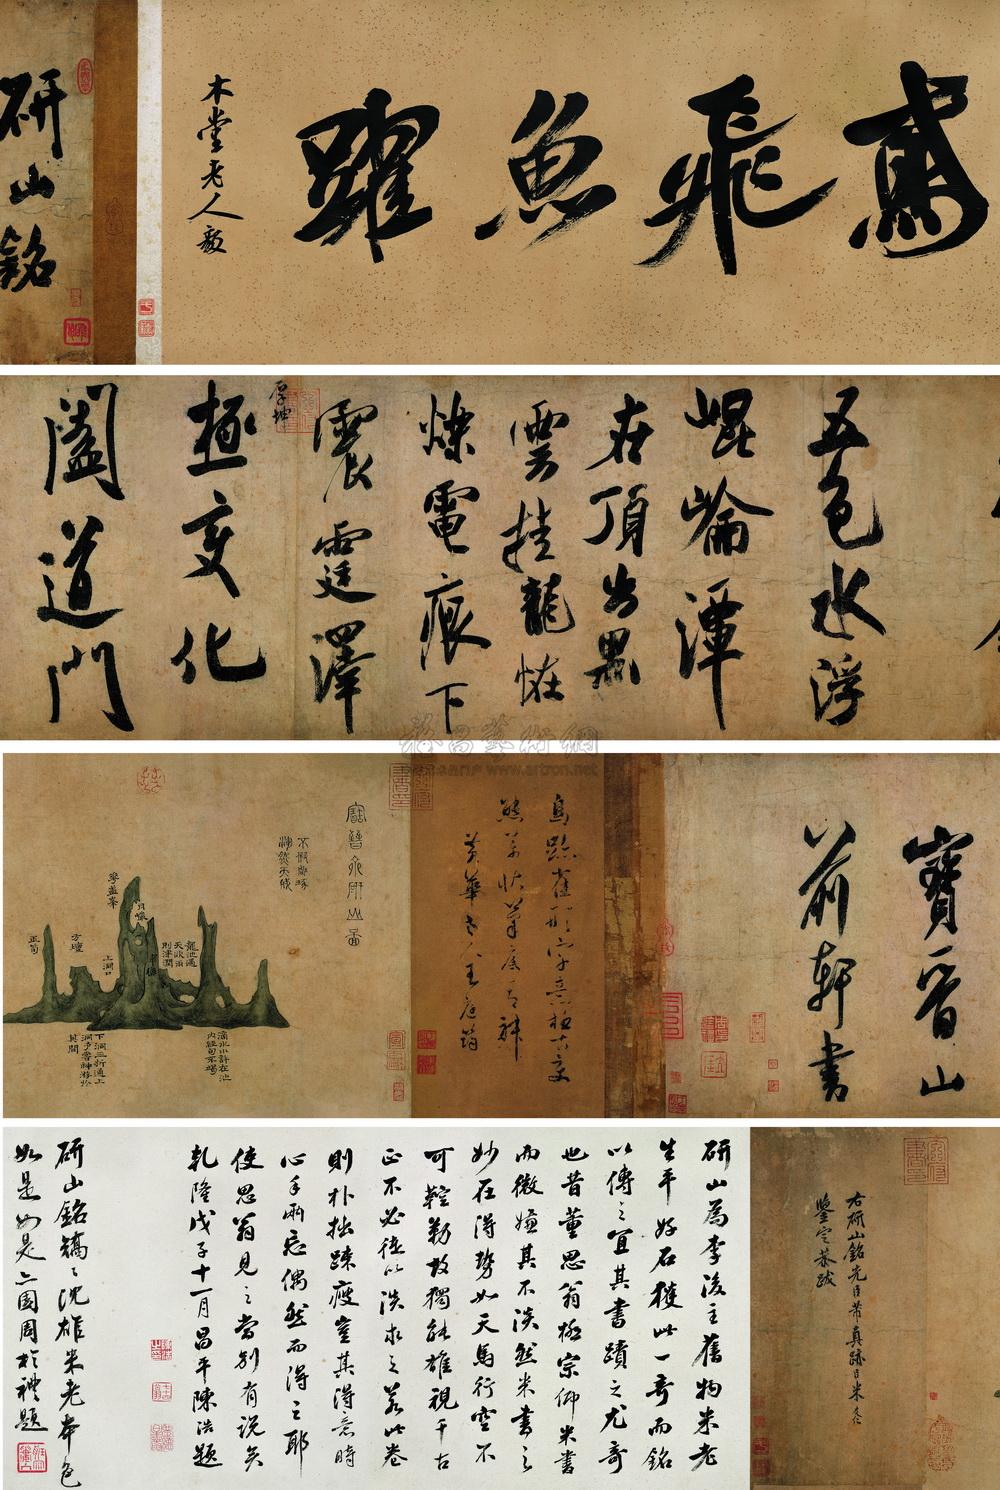 鳶飛魚躍
木堂老人毅
研山銘
五色水浮
崐崘潭
在頂出黑
雲挂龍恠
爍電痕下
震霆澤
厚坤
極變化
闔道門
寶晉山
前軒書
鳥跡雀形字意極古變
態萬狀筆底有神
黃華老人王庭筠
寶晉齋研山圖
不假雕琢
渾然天成
華蓋峯
月巖
方壇
玉筍
上洞口
翠巒
龍池遇
天欲雨
則津潤
下洞三折通上
洞予嘗神游於
其間
滴水小許在池
內經旬不竭
右研山銘先臣芾真跡臣米友仁
鑒定恭跋
研山為李後主舊物米老
生平好石獲此一奇而銘
以傳之宜其書蹟之尤奇
也昔董思翁極宗仰米書
而微嫌其不淡然米書之
妙在得勢如天馬行空不
可鞚勒故獨能雄視千古
正不必徒以淡求之若此卷
則朴拙疎瘦豈其得意時
心手兩忘偶然而得之耶
使思翁見之當別有說矣
乾隆戊子十一月昌平陳浩題
研山銘矯矯沈雄米老本色
如是如是亡國周於禮題
雅昌藝術網
www.artron.net